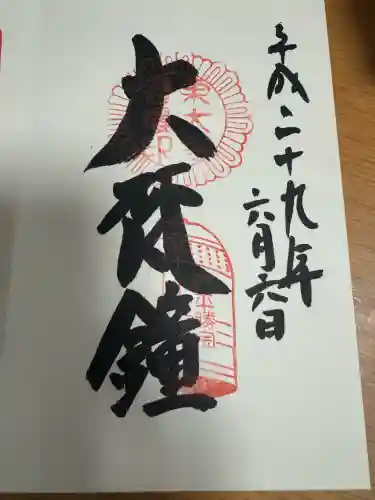 平成二十九年
六月六日
大梵鐘
東大